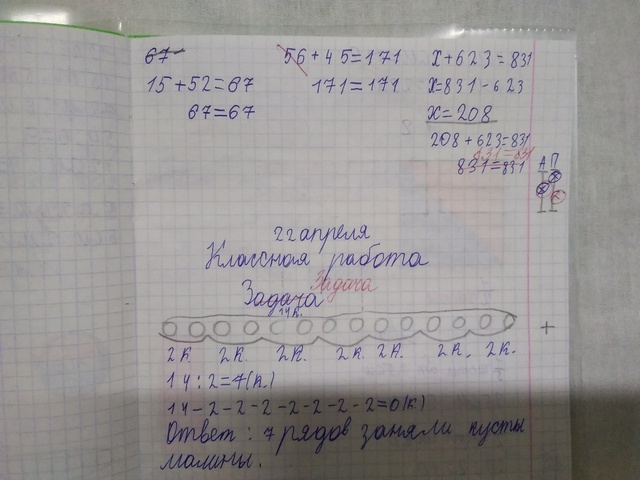 67
15+52=67
67=67
56+45=171
171=171
x+623=831
x=831-623
x=208
208+623=831
831=831
831=831
А П
22 апреля
Классная работа
Задача Задача
14к.
2к. 2к. 2к. 2к. 2к. 2к. 2к.
14:2=7(к.)
14-2-2-2-2-2-2-2=0(к)
Ответ: 7 рядов заняли кусты
малины.
+